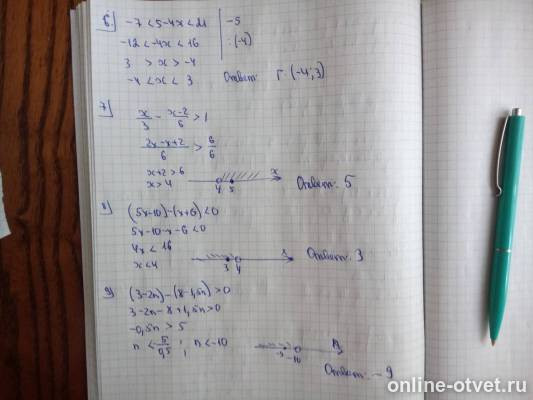 6) -7 < 5-4x < 21 | -5
-12 < -4x < 16 | :(-4)
3 > x > -4
-4 < x < 3 Ответ: Г. (-4; 3)
7) x/3 - x-2/6 > 1
2x-x+2/6 > 6/6
x+2 > 6
x > 4
4 5 x
Ответ: 5
8) (5x-10)-(x+6)<0
5x-10-x-6<0
4x < 16
x < 4
3 4 x
Ответ: 3
9) (3-2n)-(8-1,5n)>0
3-2n-8+1,5n>0
-0,5n > 5
n < -5/0,5 ; n < -10
-9 -10 n
Ответ: -9
online-otvet.ru